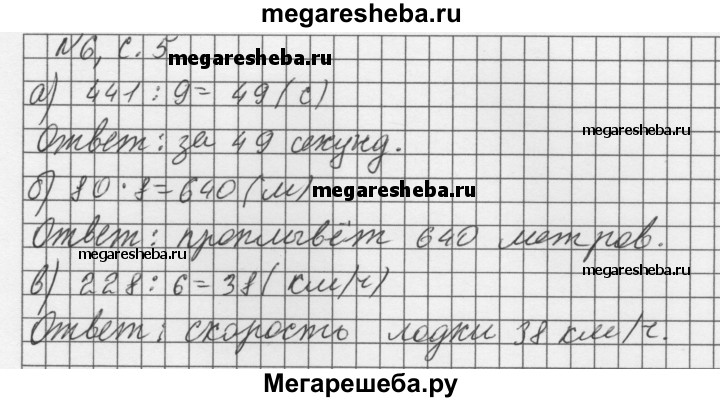 megaresheba.ru
№6, с. 5
megaresheba.ru
а) 441 : 9 = 49 (с)
megaresheba.ru
Ответ: за 49 секунд.
б) 80 · 8 = 640 (м)
megaresheba.ru
Ответ: проплывёт 640 метров.
megaresheba.ru
megaresheba.ru
в) 228 : 6 = 38 (км/ч)
Ответ: скорость лодки 38 км/ч.
Мегарешеба.ру